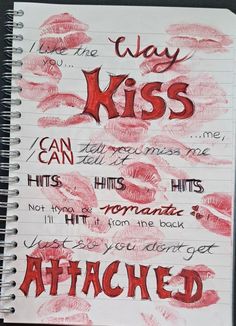 I like the Way
you...
Kiss
...me,
I CAN tell you miss me
CAN tell it
HITS HITS HITS
Not tryna be romantic
I'll HIT it from the back
Just so you don't get
ATTACHED